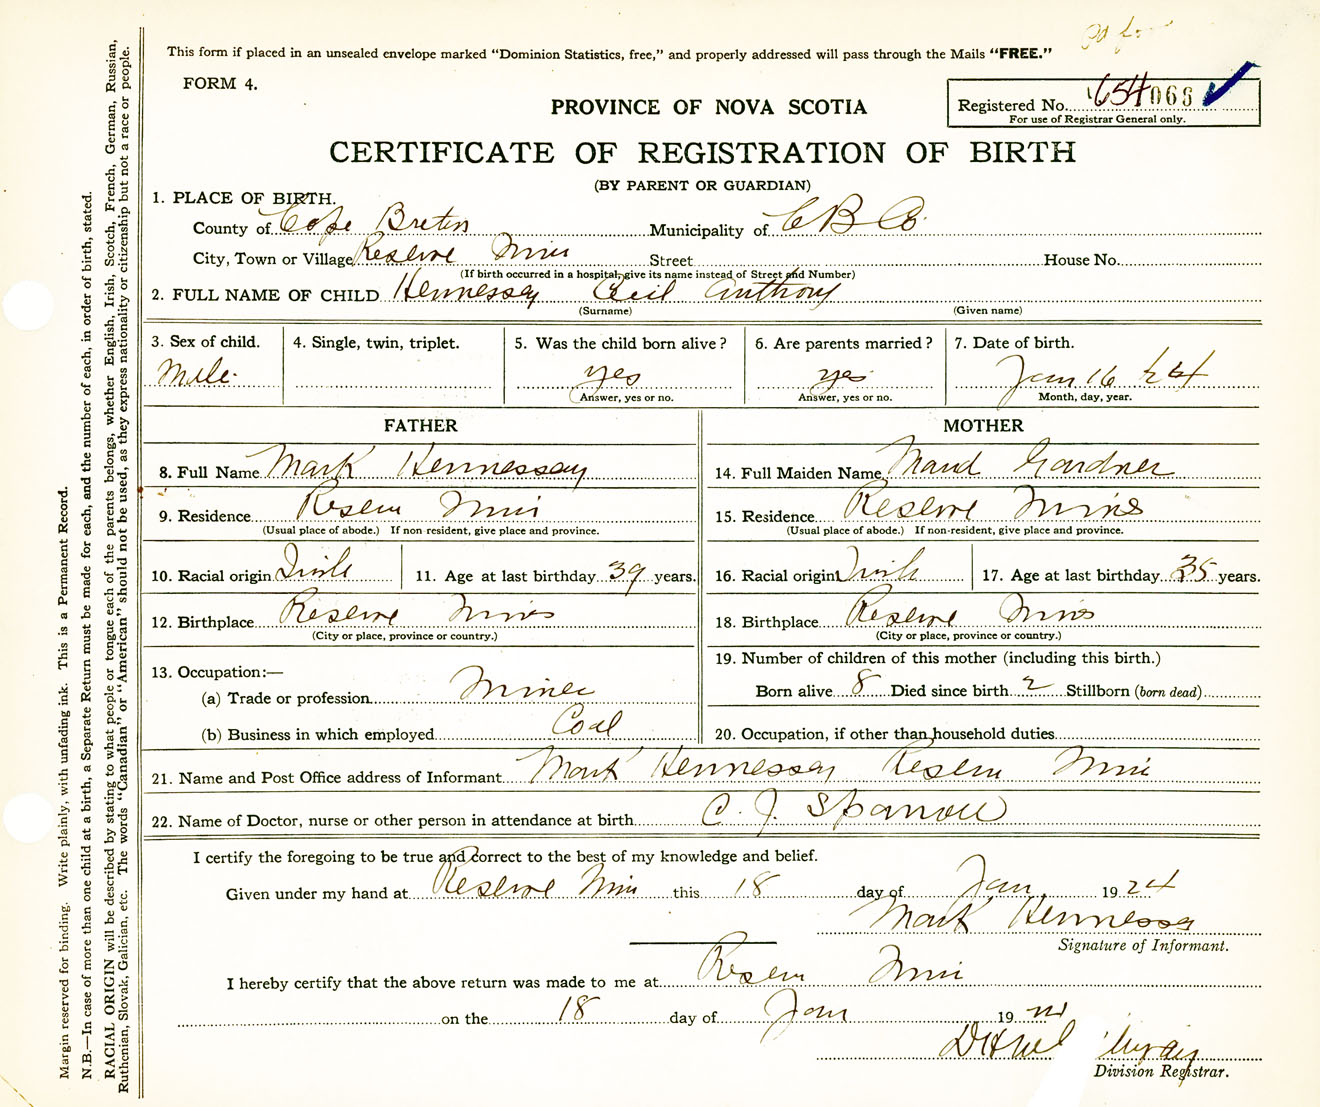 This form if placed in an unsealed envelope marked "Dominion Statistics, free," and properly addressed will pass through the Mails "FREE."
FORM 4.
PROVINCE OF NOVA SCOTIA
Registered No. 654068
For use of Registrar General only.
CERTIFICATE OF REGISTRATION OF BIRTH
(BY PARENT OR GUARDIAN)
1. PLACE OF BIRTH.
County of Cape Breton Municipality of C B Co
City, Town or Village Reserve Mines Street House No.
(If birth occurred in a hospital, give its name instead of Street and Number)
2. FULL NAME OF CHILD Hennessey Cecil Anthony
(Surname) (Given name)
3. Sex of child. 4. Single, twin, triplet. 5. Was the child born alive? 6. Are parents married? 7. Date of birth.
Male yes yes Jan 16 24
Answer, yes or no. Answer, yes or no. Month, day, year.
FATHER MOTHER
8. Full Name Mark Hennessey 14. Full Maiden Name Maud Gardner
9. Residence Reserve Mines 15. Residence Reserve Mines
(Usual place of abode.) If non-resident, give place and province. (Usual place of abode.) If non-resident, give place and province.
10. Racial origin Irish 11. Age at last birthday 39 years. 16. Racial origin Irish 17. Age at last birthday 35 years.
12. Birthplace Reserve Mines 18. Birthplace Reserve Mines
(City or place, province or country.) (City or place, province or country.)
13. Occupation:— 19. Number of children of this mother (including this birth.)
(a) Trade or profession Miner Born alive 8 Died since birth 2 Stillborn (born dead)
(b) Business in which employed Coal 20. Occupation, if other than household duties
21. Name and Post Office address of Informant Mark Hennessey Reserve Mines
22. Name of Doctor, nurse or other person in attendance at birth C. J. Sparrow
I certify the foregoing to be true and correct to the best of my knowledge and belief.
Given under my hand at Reserve Mines this 18 day of Jan 1924
Mark Hennessey
Signature of Informant.
I hereby certify that the above return was made to me at Reserve Mines
on the 18 day of Jan 19
Division Registrar.
Margin reserved for binding. Write plainly, with unfading ink. This is a Permanent Record.
N.B.—In case of more than one child at a birth, a Separate Return must be made for each, and the number of each, in order of birth, stated.
RACIAL ORIGIN will be described by stating to what people or tongue each of the parents belongs, whether English, Irish, Scotch, French, German, Russian,
Ruthenian, Slovak, Galician, etc. The words "Canadian" or "American" should not be used, as they express nationality or citizenship but not a race or people.